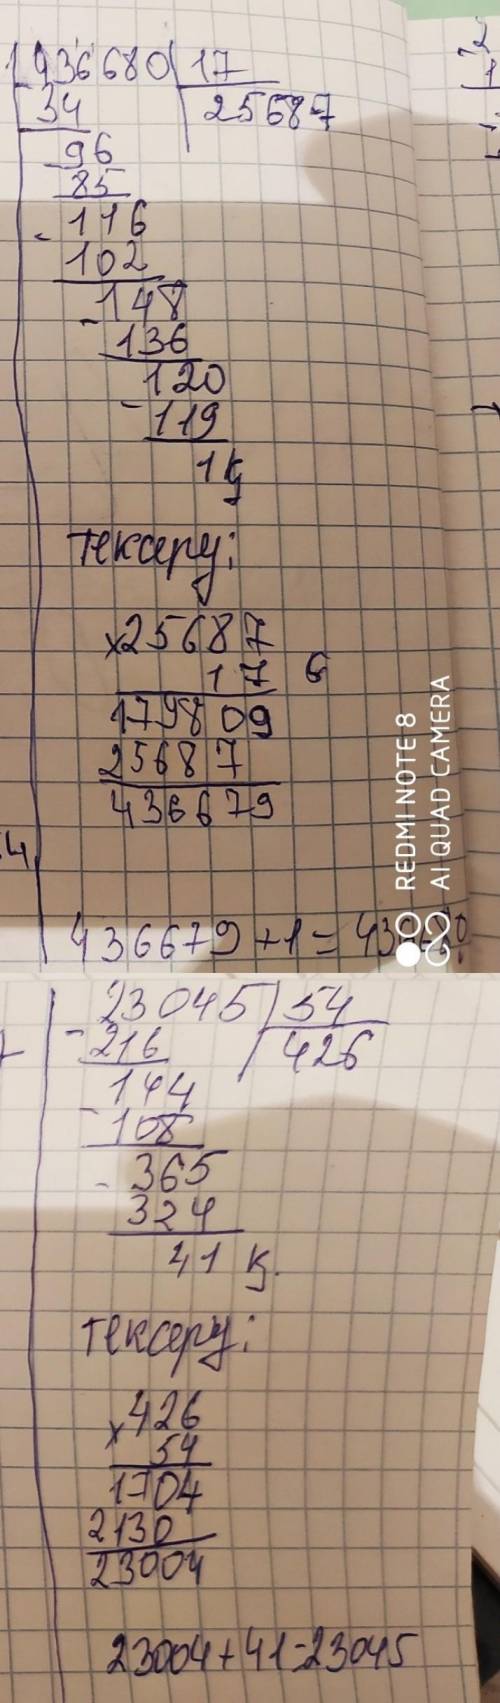 436680 17
34 25687
96
85
116
102
148
136
120
119
1 қ
Тексеру:
×25687
17 6
179809
25687
436679
436679+1=436680
REDMI NOTE 8
AI QUAD CAMERA
23045 54
-216 426
144
-108
-365
324
41 қ.
Тексеру:
×426
54
1704
2130
23004
23004+41=23045